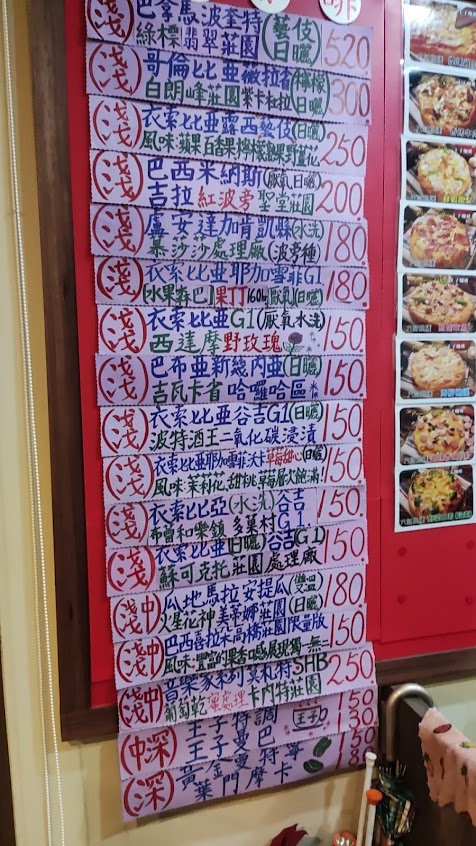 啡
淺 巴拿馬波奎特(藝伎
綠標翡翠莊園 日曬) 520
淺 哥倫比亞微拉省(檸檬
白朗峰莊園紫卡杜拉 日曬) 300
淺 衣索比亞露西藝伎(日曬)
風味:蘋果百香果檸檬 野薑花 250
淺 巴西米納斯(厭氧日曬)
吉拉紅波旁聖堂莊園 200.
淺 盧安達加肯凱縣(水洗)
暮莎莎處理廠(波旁種) 180.
淺 衣索比亞耶加雪菲G1
[水果森巴]果丁丁160hr(厭氧)(日曬) 180.
淺 衣索比亞G1(厭氧水洗)
西達摩野玫瑰 150.
淺 巴布亞新幾內亞(日曬)
吉瓦卡省哈囉哈區 150.
淺 衣索比亞谷吉G1(日曬)
波特酒王二氧化碳浸漬 150.
淺 衣索比亞耶加雪菲沃卡草莓甜心(日曬)
風味:茉莉化.甜桃.草莓.層次飽滿! 150
淺 衣索比亞(水洗)谷吉
布曾和樂鎮 多葉村G1 150
淺 衣索比亞(日曬)谷吉G1
蘇可克托莊園處理廠 150.
淺中 瓜地馬拉安提瓜(雙溫
火星化神 美蒂娜莊園 日曬) 180.
淺中 巴西喜拉朵高橋莊園限量版
風味:豐富的果香口感展現獨一無二 150
淺中 音樂家系列莫札特SHB
葡萄乾蜜處理 卡內特莊園 250
中深 王子特調 王子 150
王子曼巴 130
深 黃金曼特寧 150
葉門摩卡 180